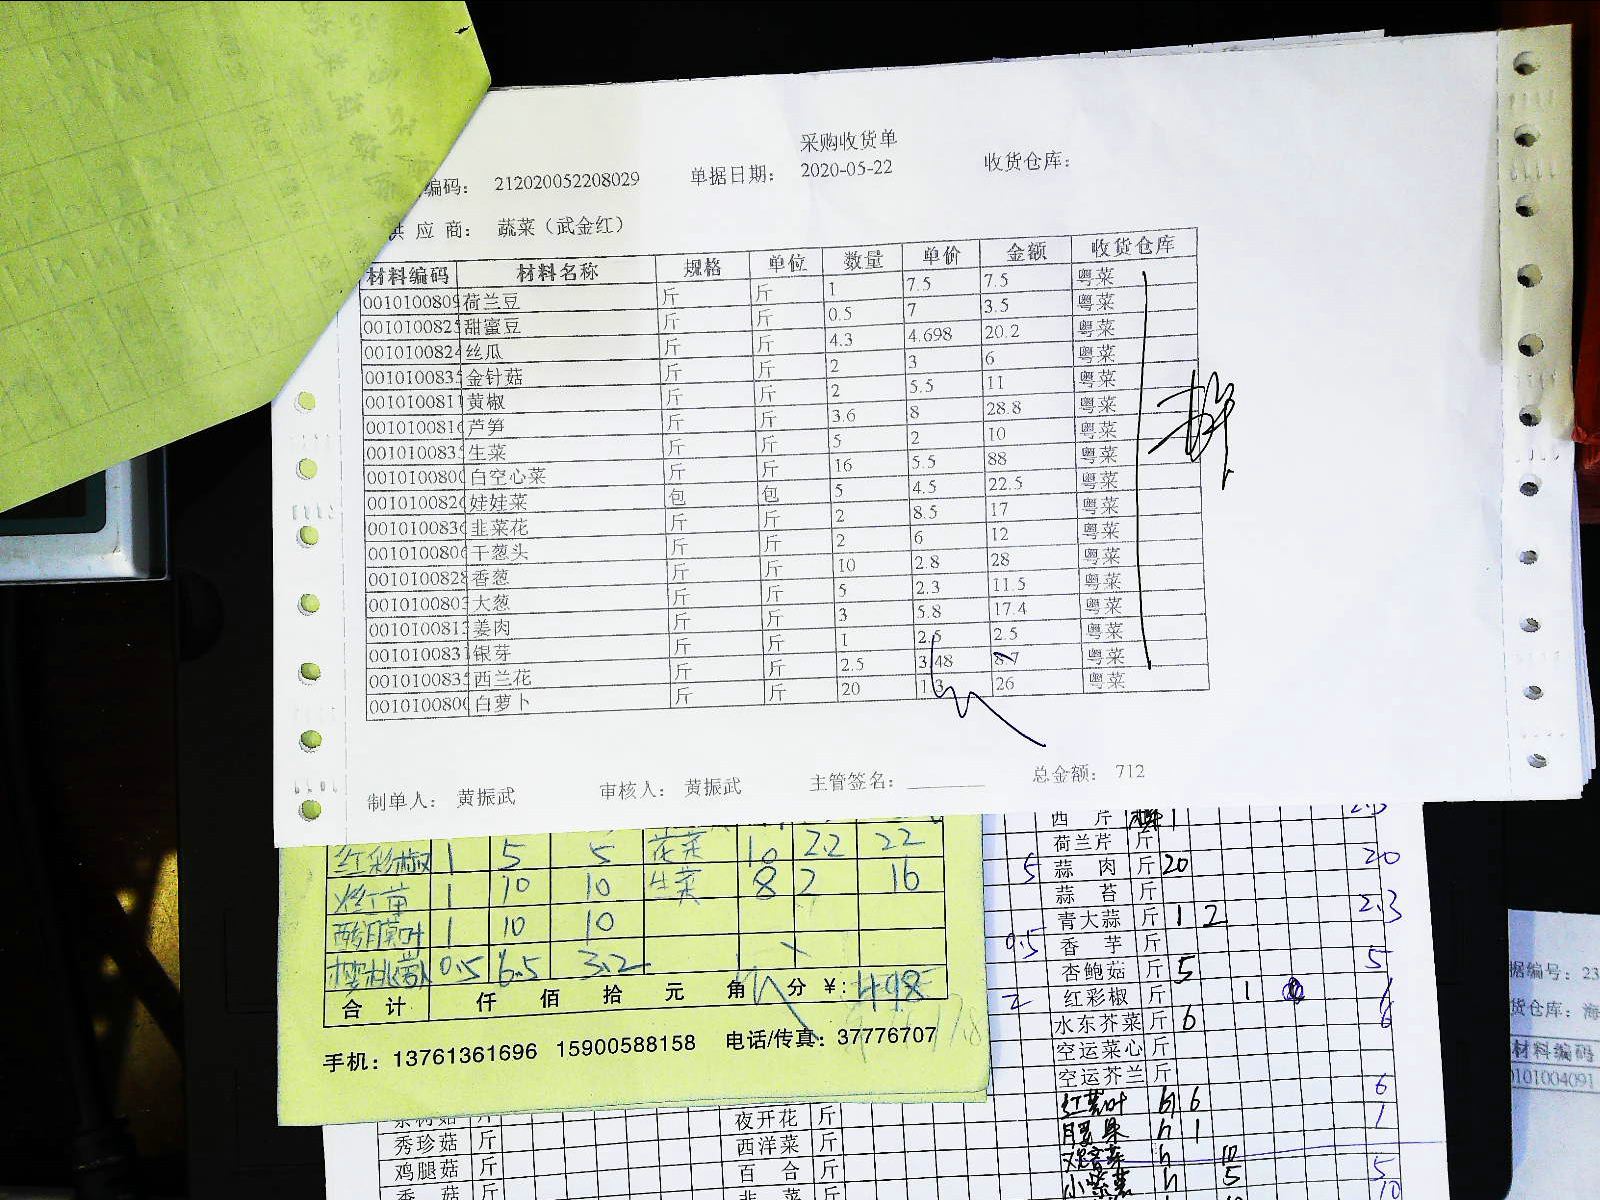 采购收货单
编码： 212020052208029 单据日期： 2020-05-22 收货仓库：
供 应 商： 蔬菜（武金红）
材料编码 材料名称 规格 单位 数量 单价 金额 收货仓库
001010080 荷兰豆 斤 斤 1 7.5 7.5 粤菜
001010082 甜蜜豆 斤 斤 0.5 7 3.5 粤菜
001010082 丝瓜 斤 斤 4.3 4.698 20.2 粤菜
001010083 金针菇 斤 斤 2 3 6 粤菜
001010081 黄椒 斤 斤 2 5.5 11 粤菜
001010081 芦笋 斤 斤 3.6 8 28.8 粤菜
001010083 生菜 斤 斤 5 2 10 粤菜
001010080 白空心菜 斤 斤 16 5.5 88 粤菜
001010082 娃娃菜 包 包 5 4.5 22.5 粤菜
001010083 韭菜花 斤 斤 2 8.5 17 粤菜
001010080 干葱头 斤 斤 2 6 12 粤菜
001010082 香葱 斤 斤 10 2.8 28 粤菜
001010080 大葱 斤 斤 5 2.3 11.5 粤菜
001010081 姜肉 斤 斤 3 5.8 17.4 粤菜
001010083 银芽 斤 斤 1 2.5 2.5 粤菜
001010083 西兰花 斤 斤 2.5 3.48 8.7 粤菜
001010080 白萝卜 斤 斤 20 1.3 26 粤菜
制单人： 黄振武 审核人： 黄振武 主管签名： 总金额： 712
红彩椒 1 5 5 花菜 10 2.2 22
1 10 10 生菜 8 2 16
1 10 10
0.5 6.5 3.2
合 计 仟 佰 拾 元 角 分 ￥: 498
手机：13761361696 15900588158 电话/传真：37776707
西 芹 1 2.5
荷兰芹 斤
5 蒜 肉 斤 20 20
蒜 苔 斤
青大蒜 斤 1 2 2.3
0.5 香 芋 斤
杏鲍菇 斤 5 5
2 红彩椒 斤 1
水东芥菜 斤 6 6
空运菜心 斤
空运芥兰 斤
6 6
夜开花 斤 1 1
秀珍菇 斤 西洋菜 斤
鸡腿菇 斤 百 合 斤 5 5
10
据编号：23
货仓库：海
材料编码
0101004091